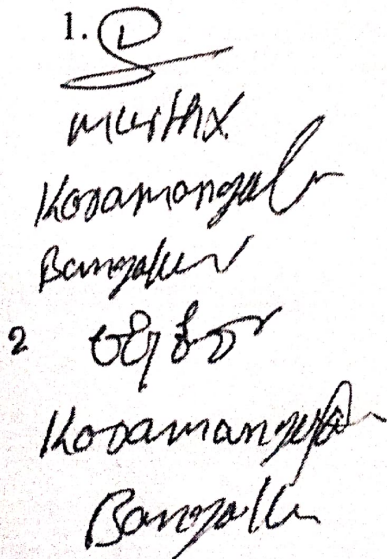 1.
Murthy
Koramangala
Bangalore
2
Koramangala
Bangalore